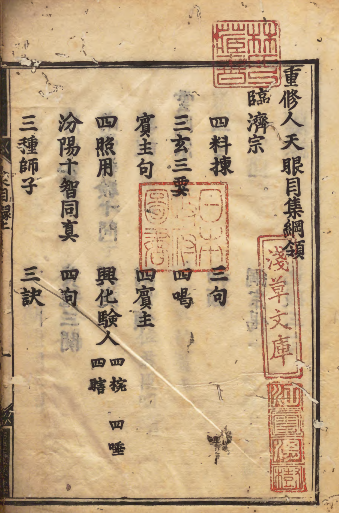 重修人天眼目集綱領
臨濟宗
四料揀 三句
三玄三要 四喝
賓主句 四賓主
四照用 興化驗人 四椀 四唾 四瞎
汾陽十智同真 四句
三種師子 三訣
淺草文庫
日本